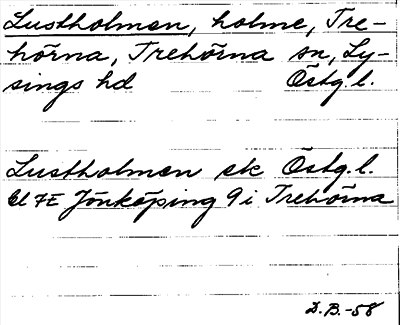 Lustholmen, holme, Tre-
hörna, Trehörna sn, Ly-
sings hd Östg.l.
Lustholmen ek Östg.l.
Bl 7E Jönköping 9i Trehörna
D.B.-58